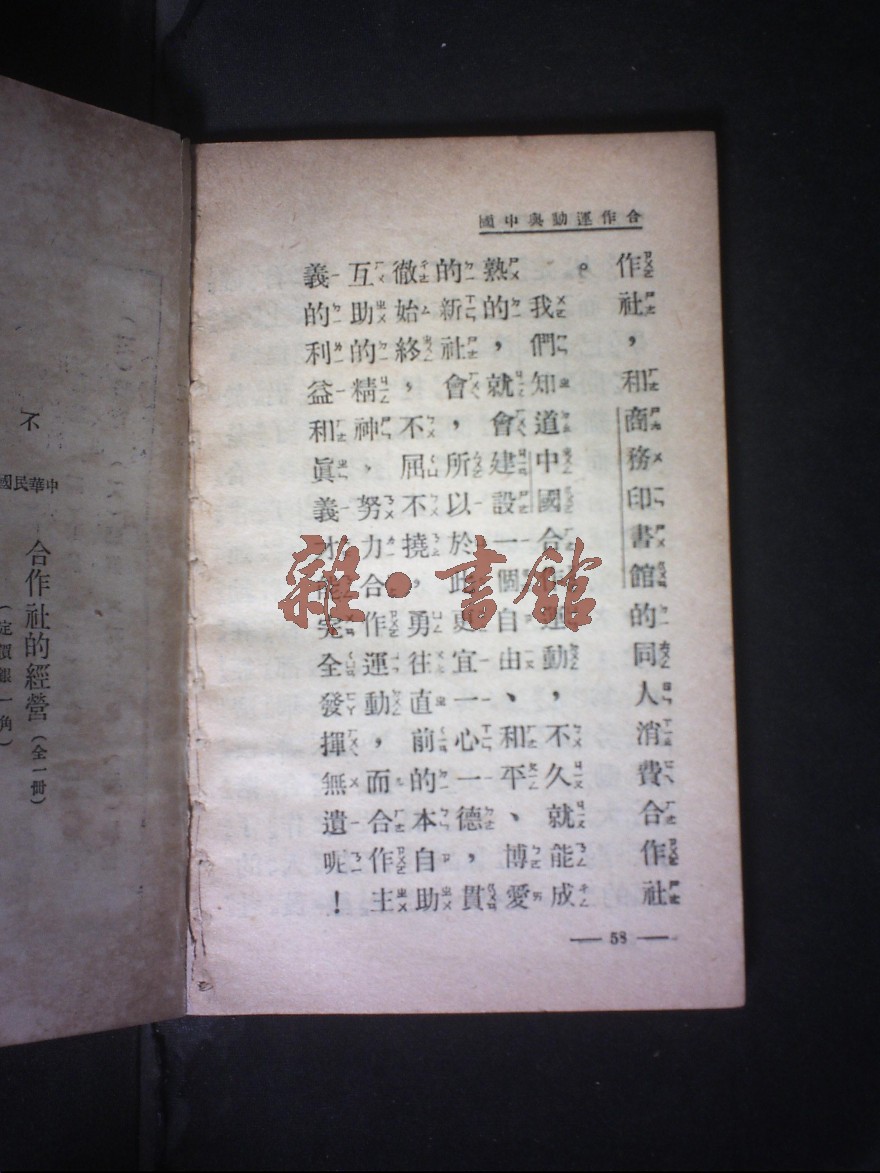 合作運動與中國
作社，和商務印書館的同人消費合作社
。我們知道中國合作運動，不久就能成
熟的，就會建設一個自由、和平、博愛
的新社會，所以於此更宜一心一德，貫
徹始終，不屈不撓，勇往直前的本自助
互助的精神，努力合作運動，而合作主
義的利益和眞義才能完全發揮無遺呢！
— 58 —
雜·書館
不
中華民國
合作社的經營（全一冊）
（定價銀一角）